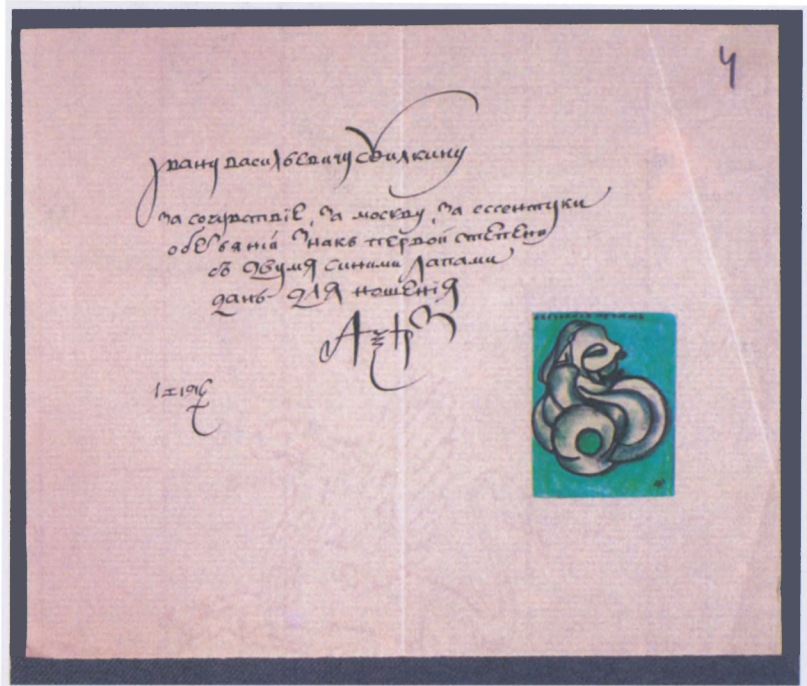 4
Ївану Васильевичу Жилкину
за сочувствіе, за москву, за ессентуки
обезьяній знакъ первой степени
съ двумя синими лапами
данъ для ношенія